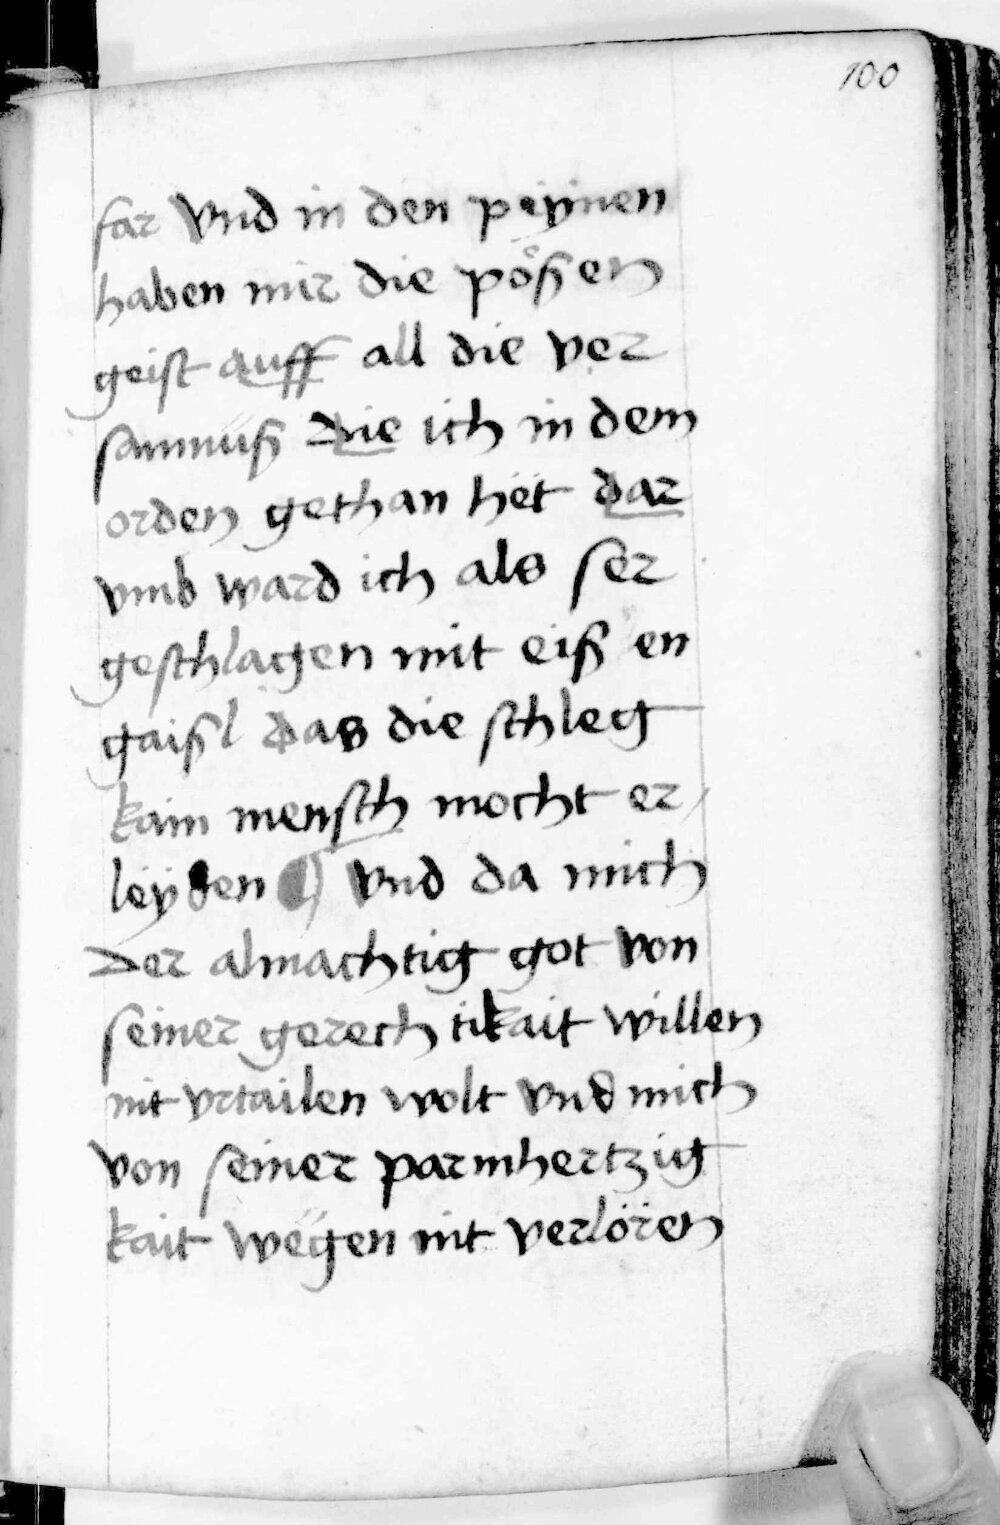 100
far vnd in den peÿnen
haben mir die pößen
geist auff all die ver
samnüß die ich in dem
orden gethan hët dar
vmb ward ich als ser
geschlagen mit eißen
gaißl das die schleg
kain mensch mocht er/
leÿden vnd da mich
der almachtig got von
seiner gerechtikait willen
nit vrtailen wolt vnd mich
von seiner parmhertzig
kait wëgen nit verlören